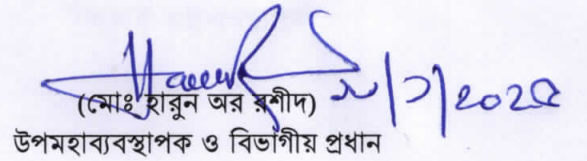 (মোঃ হারুন অর রশীদ)
উপমহাব্যবস্থাপক ও বিভাগীয় প্রধান